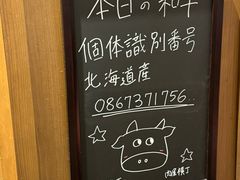 本日の和牛
個体識別番号
北海道産
0867371756..
肉屋横丁